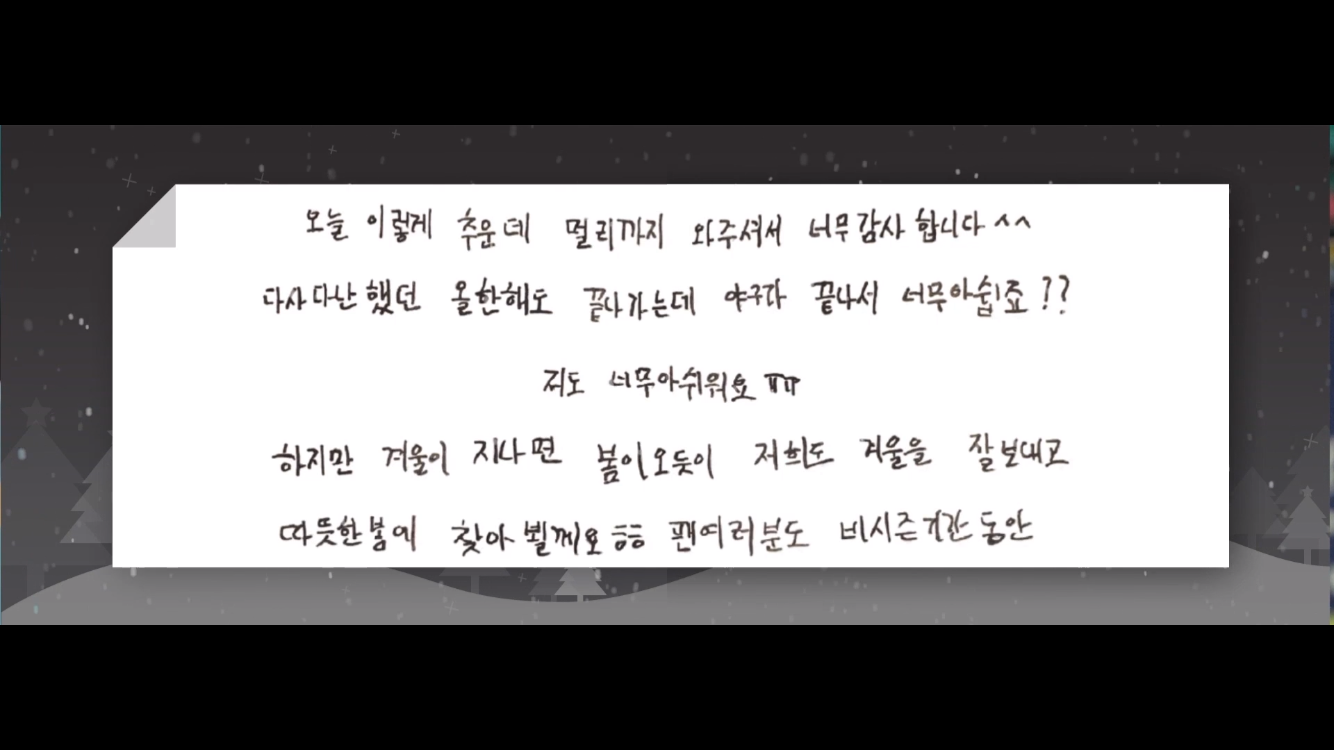 오늘 이렇게 추운데 멀리까지 와주셔서 너무감사 합니다 ^^
다사다난했던 올한해도 끝나가는데 야구가 끝나서 너무아쉽죠??
저도 너무아쉬워요 ㅠㅠ
하지만 겨울이 지나면 봄이오듯이 저희도 겨울을 잘보내고
따뜻한봄에 찾아 뵐께요 ㅎㅎ 팬여러분도 비시즌기간동안